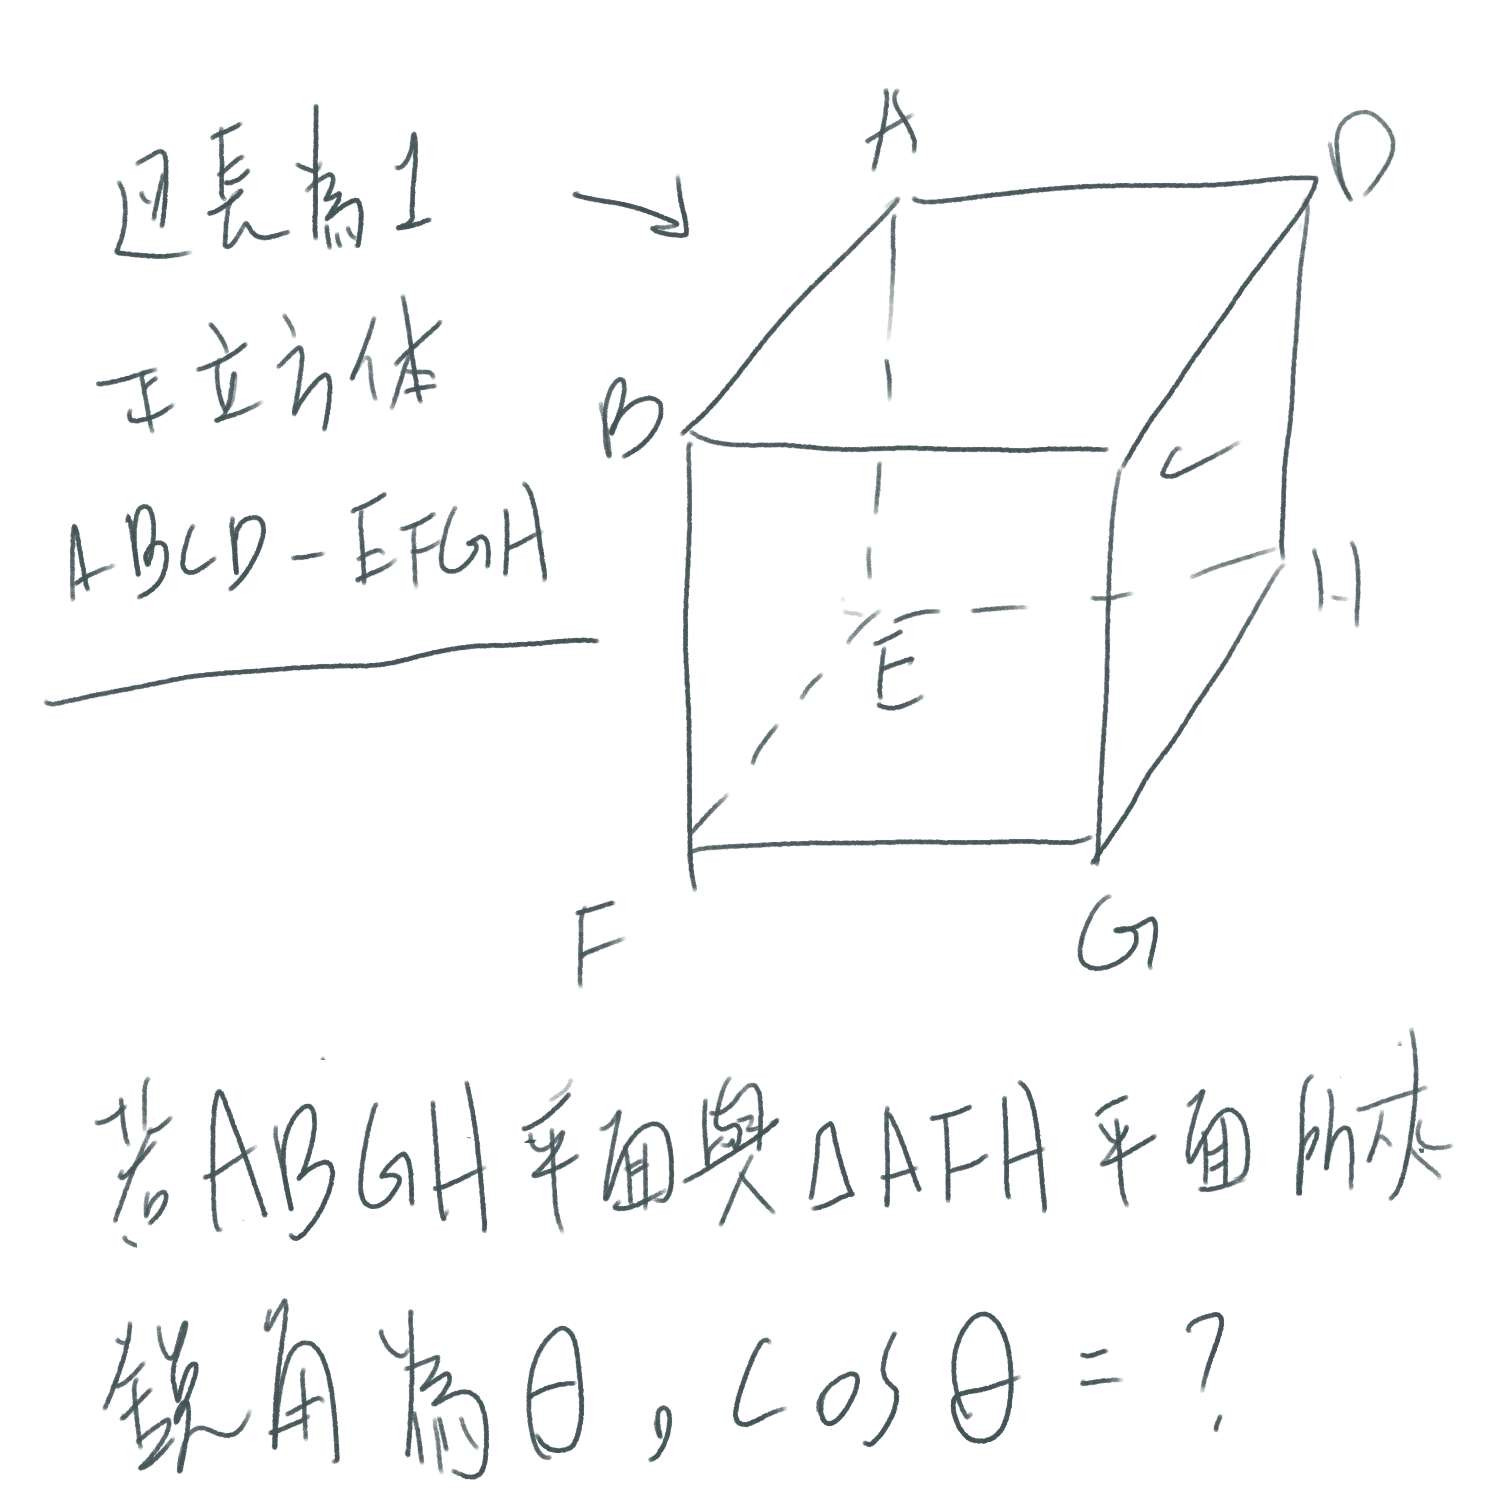 边長為1
正立方体
ABCD-EFGH
A
D
B
C
E
H
F
G
若ABGH平面與△AFH平面所夾
銳角為θ,cosθ=?